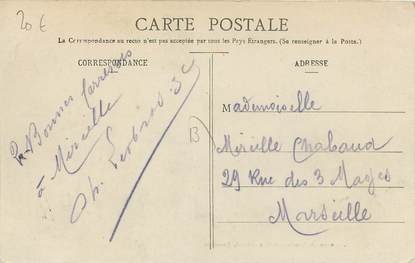 20 €
CARTE POSTALE
La Correspondance au recto n'est pas acceptée par tous les Pays Étrangers. (Se renseigner à la Poste.)
CORRESPONDANCE
Bonnes
à Mireille
Ch.
B
ADRESSE
Mademoiselle
Mireille Chabaud
29 Rue des 3 Mages
Marseille